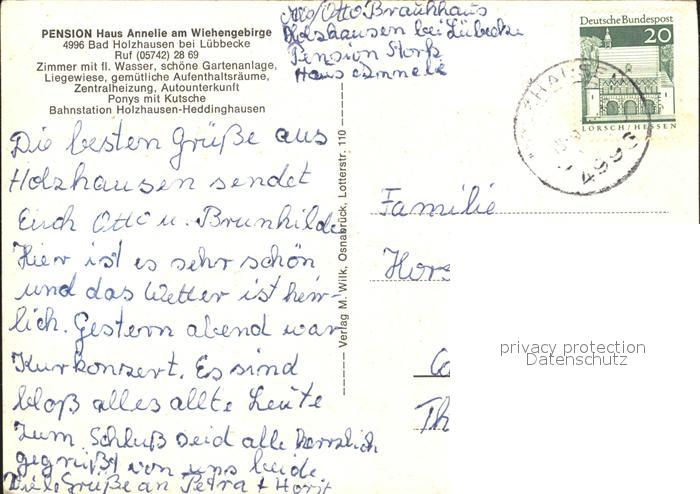 PENSION Haus Annelie am Wiehengebirge
4996 Bad Holzhausen bei Lübbecke
Ruf (05742) 28 69
Zimmer mit fl. Wasser, schöne Gartenanlage,
Liegewiese, gemütliche Aufenthaltsräume,
Zentralheizung, Autounterkunft
Ponys mit Kutsche
Bahnstation Holzhausen-Heddinghausen
Otto Brauhhaus
Holzhausen bei Lübbecke
Pension Storß
Haus
Die besten Grüße aus
Holzhausen sendet
Euch Otto u. Brunhilde
Hier ist es sehr schön
und das Wetter ist herr-
lich. Gestern abend war
Kurkonzert. Es sind
bloß alles allte Leute
Zum Schluß seid alle herzlich
gegrüßt von uns beide
Viele Grüße an Petra + Horst
Verlag M. Wilk, Osnabrück, Lotterstr. 110
Deutsche Bundespost
20
LORSCH/HESSEN
4996
Familie
Hors
Th
privacy protection
Datenschutz